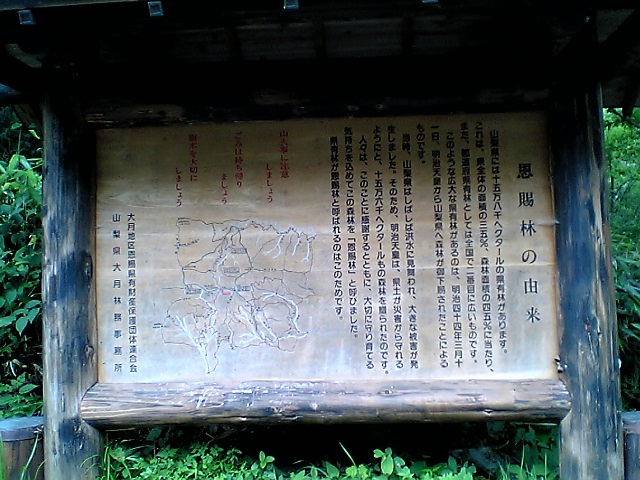 恩賜林の由来
山梨県には十五万八千ヘクタールの県有林があります。
これは、県全体の面積の三五%、森林面積の四五%に当たり、
また、都道府県有林としては全国で二番目に広いものです。
このような広大な県有林があるのは、明治四十四年三月十
一日、明治天皇から山梨県へ森林が御下賜されたことによる
ものです。
当時、山梨県はしばしば洪水に見舞われ、大きな被害が発
生しました。そのため、明治天皇は、県土が災害から守れる
ようにと、十五万六千ヘクタールもの森林を賜られたのです。
人々は、このことに感謝するとともに、大切に守り育てる
気持ちを込めてこの森林を「恩賜林」と呼びました。
県有林が恩賜林と呼ばれるのはこのためです。
山火事に注意
しましょう
ごみは持ち帰り
ましょう
樹木を大切に
しましょう
大月地区恩賜県有財産保護団体連合会
山梨県大月林務事務所